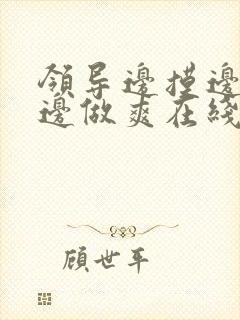 領导邊摸邊
邊做爽在綫
顾世平